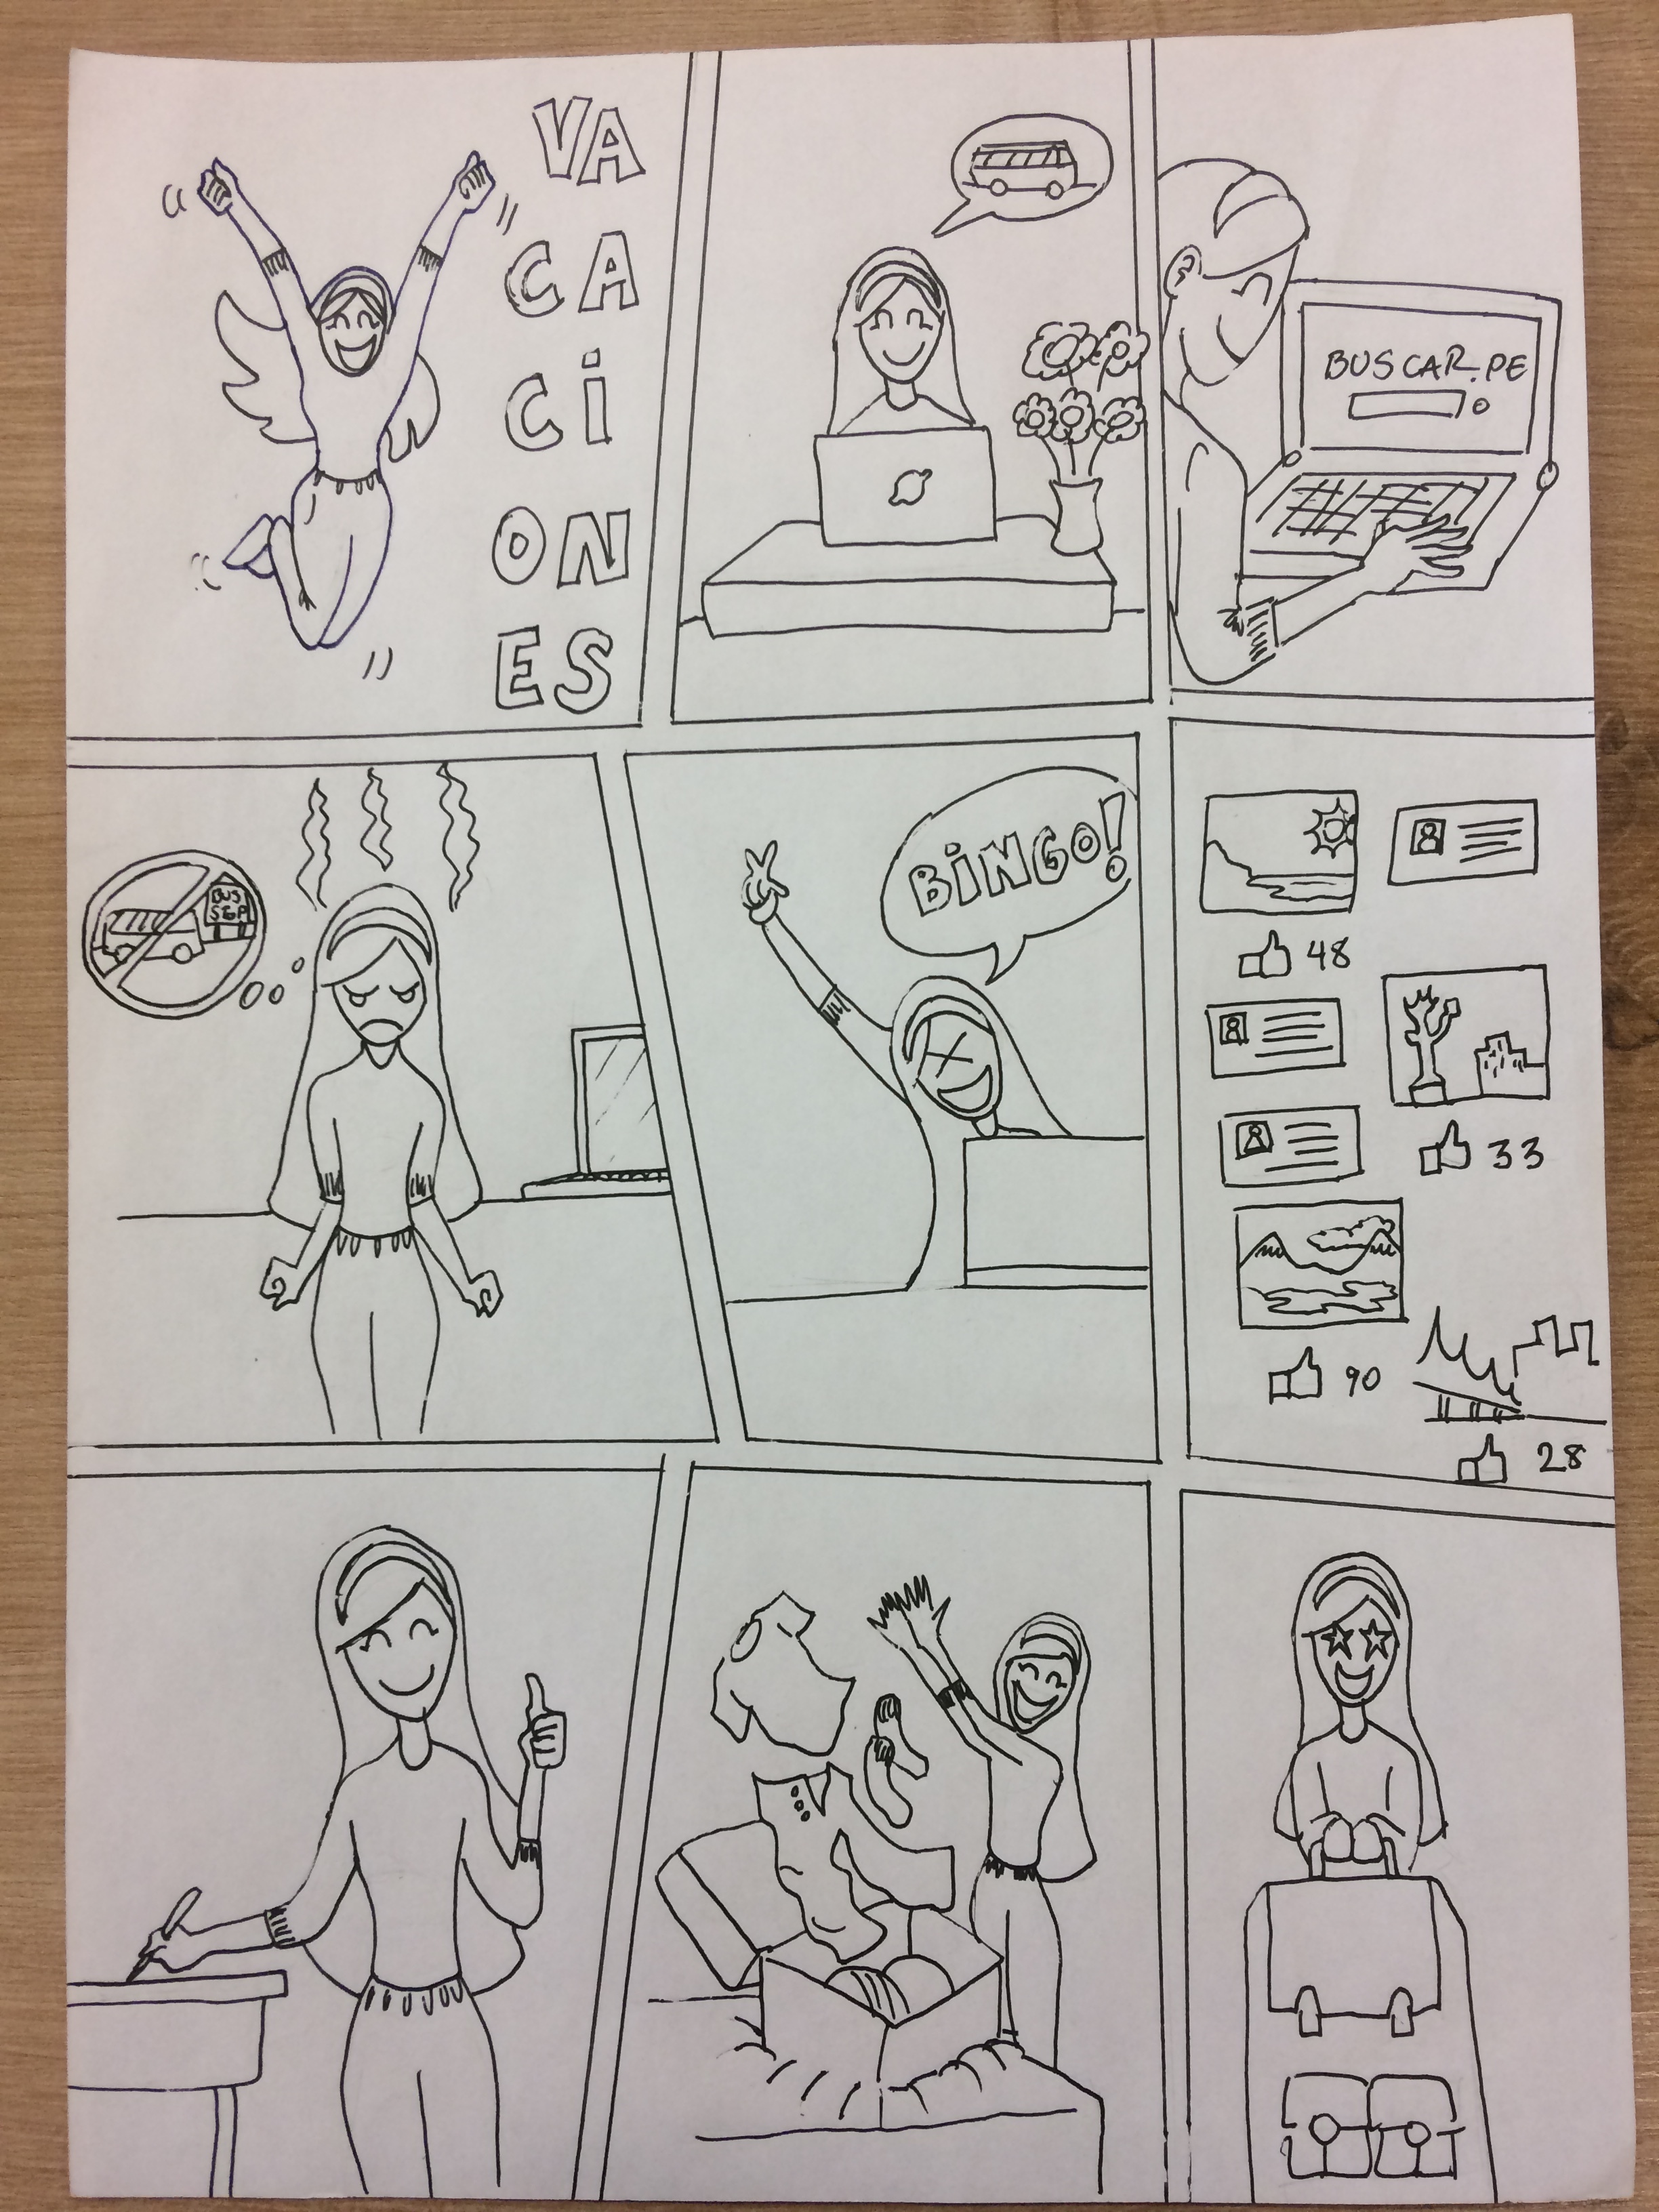 VA
CA
CI
ON
ES
BUSCAR.PE
BUS
STOP
BINGO!
48
33
90
28